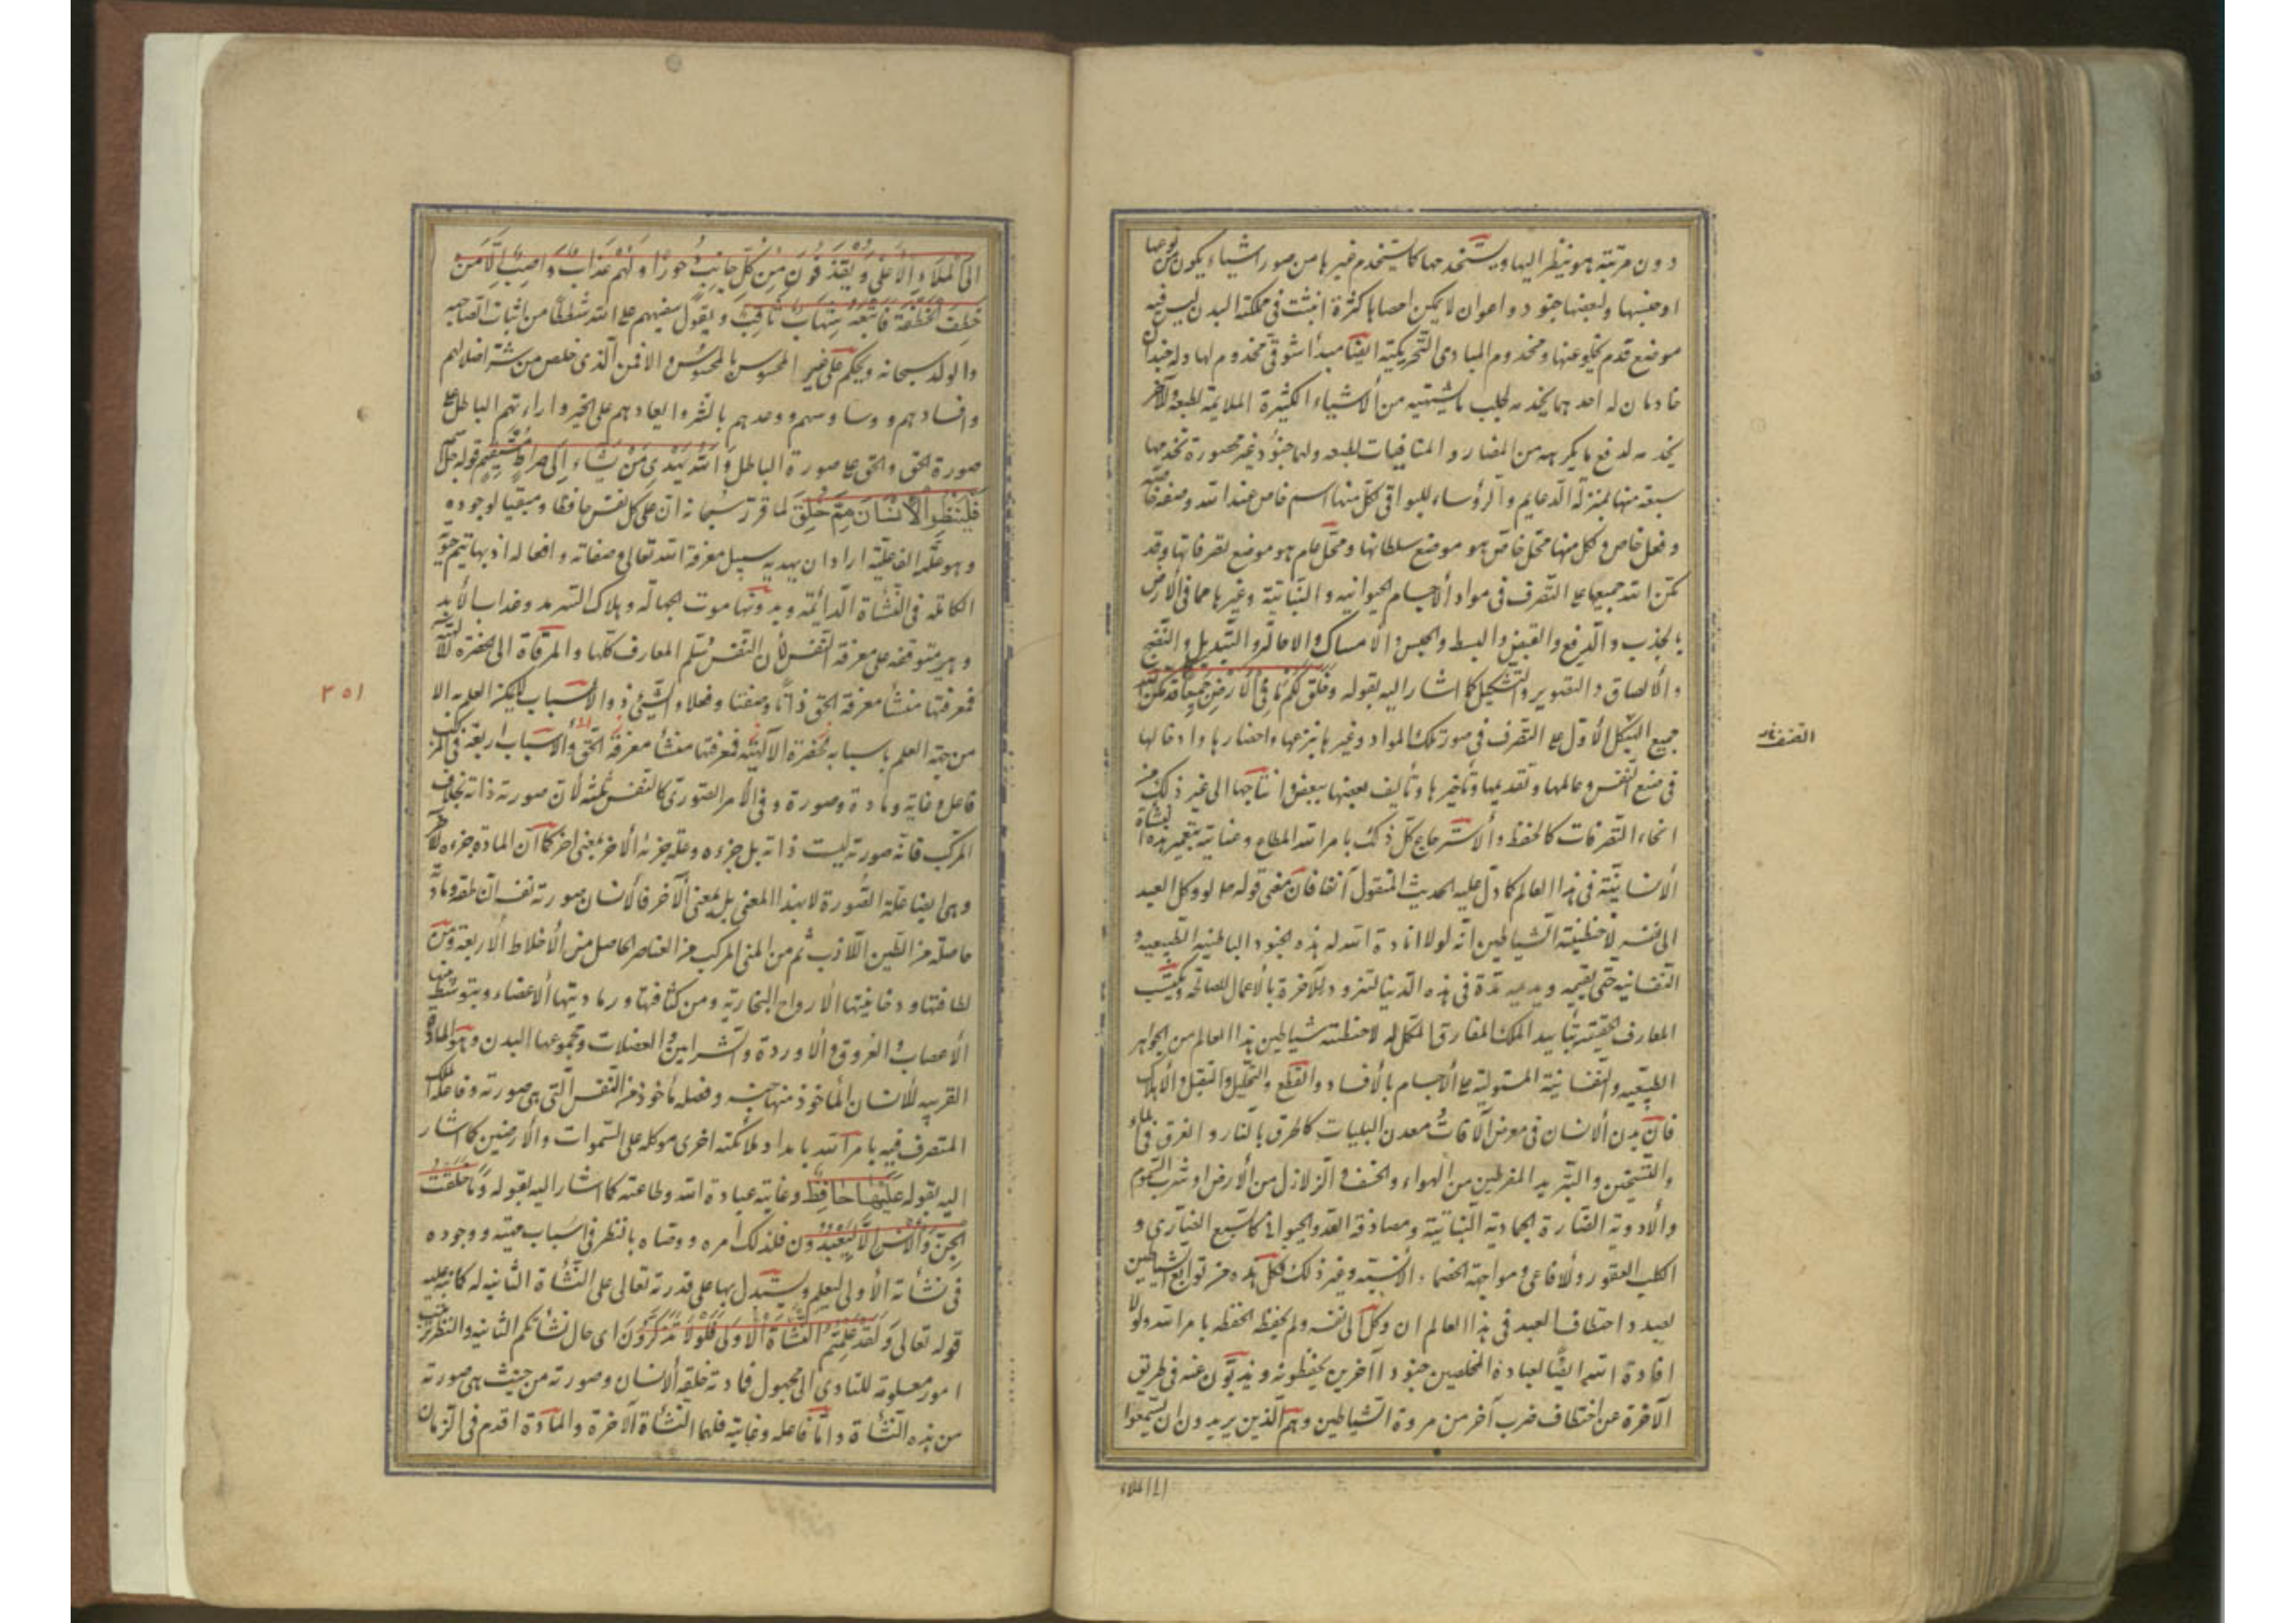 دون مرتبته هو ينظر اليها ويستخدمها كما يستخدم غيرها من صور اشياء يكون من نوعها
او جنسها ولبعضها جنود واعوان لا يمكن احصاها كثرة انبثت فى مملكة البدن ليس فيه
موضع قدم يخلو عنها ومخدوم المبادى التحريكية ايضا مبدأ شوقى مخدوم لها وله جندان
خادمان له احدهما يخدمه لجلب ما يشتهيه من الأشياء الكثيرة الملايمة لطبعه والآخر
يخدمه لدفع ما يكرهه من المضار و المنافيات لطبعه ولها جنود غير محصورة تخدمها
سبعة منها بمنزلة الدعايم والرؤساء للبواقى لكل منها اسم خاص عند الله وصفة خاصة
و فعل خاص و لكل منها محل خاص هو موضع سلطانها ومحل عام هو موضع تصرفاتها وقد
مكن الله جميعها على التصرف فى مواد الأجسام الحيوانية و النباتية وغيرها مما فى الأرض
بالجذب والدفع والقبض والبسط والحبس والامساك والاحالة والتبديل والنضج
و الألصاق و التصوير والتشكيل كما اشار اليه بقوله وخلق لكم ما فى الأرض جميعا قد مكن الله
جميع الهيكل الأول على التصرف فى صور تلك المواد وغيرها بنزعها واحضارها وادخالها
القنفذار
فى صنع النفس وعالمها وتقديمها وتأخيرها وتأليف بعضها ببعض وانتاجها الى غير ذلك من
انحاء التصرفات كالحفظ والأسترجاع كل ذلك بامر الله المطاع وعناية بتعمير هذه النشأة
الأنسانية فى هذا العالم كما دل عليه الحديث المنقول آنفا فان معنى قوله ع لو وكل العبد
الى نفسه لاختطفته الشياطين انه لولا افادة الله له هذه الجنود الباطنية الطبيعية و
النفسانية حتى يقيمه ويديمه مدة فى هذه الدنيا لتزود للآخرة بالأعمال الصالحة ويكتسب
المعارف الحقيقية بتأييد الملك المفارق المكمل له لاختطفته شياطين هذا العالم من الجواهر
الطبيعية والنفسانية المستولية على الأجسام بالأفساد والقطع والتحليل والنقل والأهلاك
فان بدن الأنسان فى معرض الآفات معدن البليات كالحرق بالنار و الغرق فى الماء
والتسخين والتبريد المفرطين من الهواء والخسف و الزلازل من الأرض او شرب السموم
والأدوية الضارة الجمادية النباتية ومصادفة العدو الحيوانى كالسبع الضارى و
الكلب العقور والأفاعى ومواجهة الخصماء الأنسية وغير ذلك فكل هذه من توابع الشياطين
لعبيد و اختطاف العبد فى هذا العالم ان وكل الى نفسه ولم يحفظ الحفظة بامر الله ولولا
افادة الله ايضا لعباده المخلصين جنودا آخرين يحفظونه ويذبون عنه فى طريق
الآخرة عن اختطاف ضرب آخر من مردة الشياطين وهم الذين يريدون ان يسمعوا
الى الملاء
الى الملاء الأعلى ويقذفون من كل جانب دحورا ولهم عذاب واصب الا من
خطف الخطفة فاتبعه شهاب ثاقب ويقول سفيههم على الله شططا من اثبات الصاحبة
والولد سبحانه ويحكم على غير المحسوس بالمحسوس والا فمن الذى خلص من شر اضلالهم
وافسادهم و وساوسهم ووعدهم بالشر وايعادهم على الخير واراءتهم الباطل على
صورة الحق والحق على صورة الباطل والله يهدى من يشاء الى صراط مستقيم قوله جل اسمه
فلينظر الأنسان مم خلق لما قرر سبحانه ان على كل نفس حافظا ومبقيا لوجوده
وهو علته الفاعلية اراد ان يهديه سبيل معرفة الله تعالى وصفاته وافعاله اذ بها تتم حيوته
الكاملة فى النشأة الدائمة وبدونها موت الجهالة وهلاك السرمد وعذاب الأبد
وهى متوقفة على معرفة النفس لأن النفس سلم المعارف كلها والمرقاة الى الحضرة الالهية
فمعرفتها منشأ معرفة الحق ذاتا وصفتا وفعلا والشىء ذو الأسباب لا يمكن العلم به الا
٣٥١
من جهة العلم باسبابه الحضرة الآلهية فمعرفتها منشأ معرفة الحق والأسباب اربعة فى المركب
فاعل وغاية ومادة وصورة وفى الأمر الصورى كالنفس ثلثة لأن صورته ذاته بخلاف
المركب فانه صورته ليست ذاته بل جزءه وعلة جزئه الآخر بمعنى آخر كما ان المادة جزءه الآخر
وهى ايضا علة الصورة لا بهذا المعنى بل بمعنى الآخر فالأنسان صورته نفسه الناطقة ومادته
حاصلة من الطين اللازب ثم من المنى المركب من العناصر الحاصل من الأخلاط الأربعة ومن
لطافتها ودخانيتها الأرواح البخارية ومن كثافتها ورماديتها الأعضاء ويتوسط منها
الأعصاب والعروق والأوردة والشرايين والعضلات ومجموعها البدن وهو المادة
القريبة للأنسان المأخوذ منها جنسه وفصله مأخوذ من النفس التى هى صورته وفاعله الملك
المتصرف فيه بامر الله بامداد ملائكة اخرى موكلة على السموات والأرضين كما اشار
اليه بقوله عليها حافظ وغايته عبادة الله وطاعته كما اشار اليه بقوله وما خلقت
الجن والأنس الا ليعبدون فلذلك امره ووصاه بالنظر فى اسباب مهيته ووجوده
فى نشأته الأولى ليعلم ويستدل بها على قدرته تعالى على النشأة الثانية له كما نبه عليه
قوله تعالى ولقد علمتم النشأة الأولى فلولا تذكرون اى حال نشأتكم الثانية والنظر ترتيب
امور معلومة للتادى الى مجهول فمادته خلقة الأنسان وصورته من حيث هى صورته
من هذه النشأة واما فاعله وغايته فلهما النشأة الآخرة والمادة اقدم فى الزمان